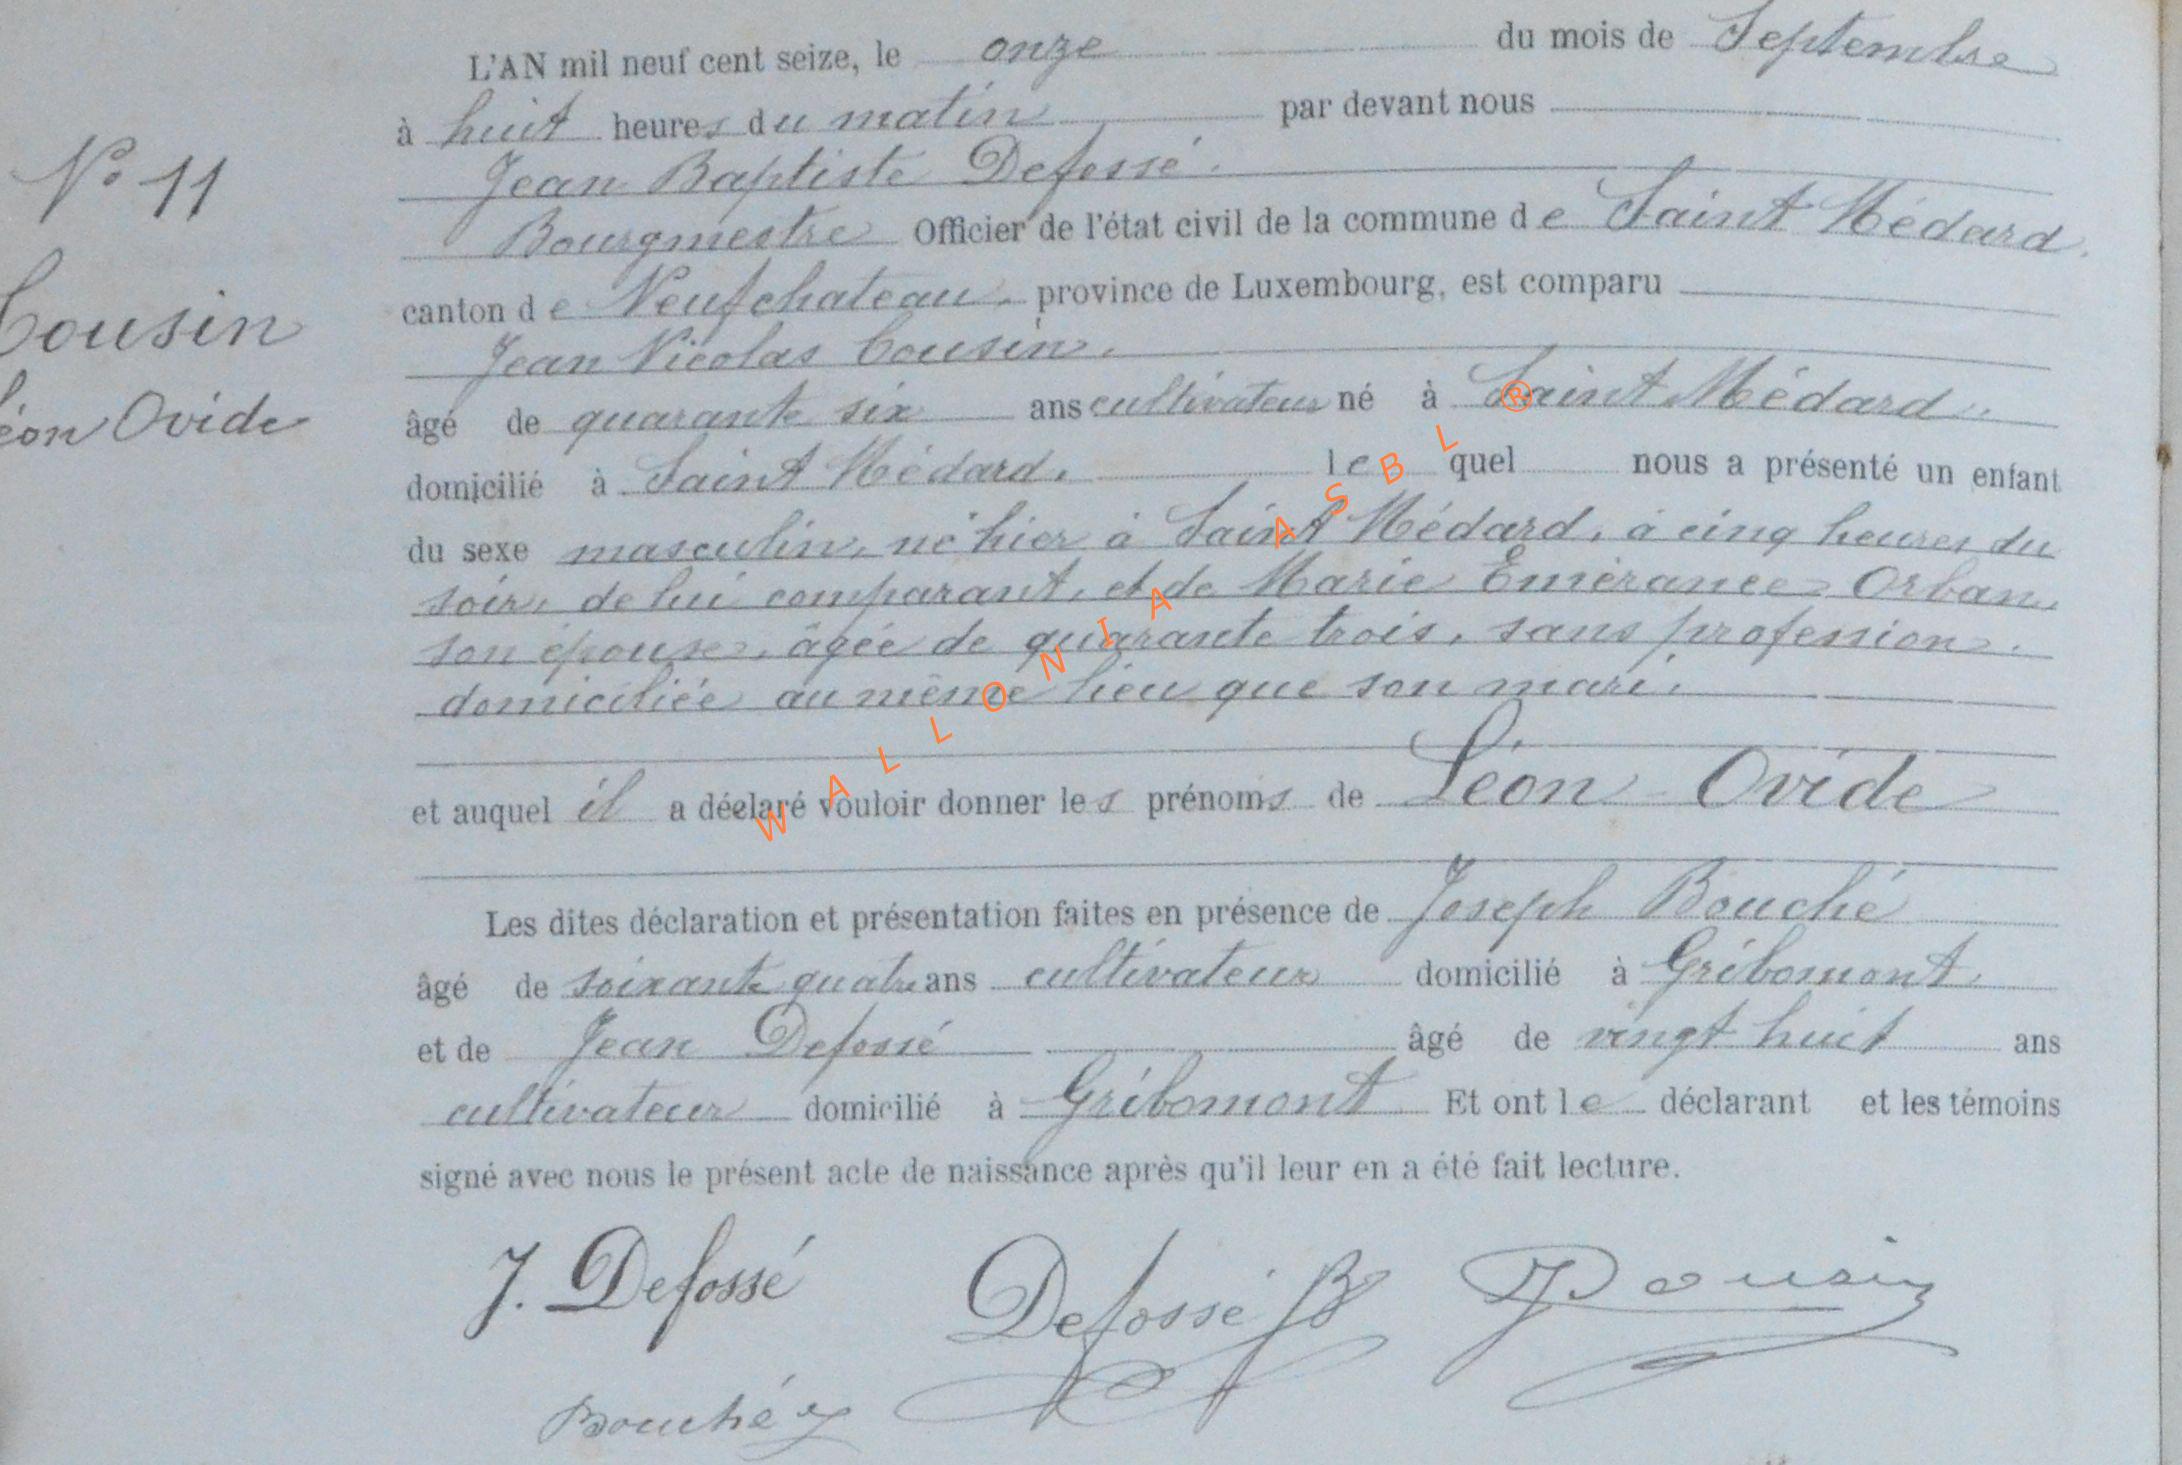 L'AN mil neuf cent seize, le onze du mois de Septembre
à huit heures du matin par devant nous
Jean Baptiste Defossé.
Bourgmestre Officier de l'état civil de la commune de Saint Médard.
canton de Neufchateau, province de Luxembourg, est comparu
Jean Nicolas Cousin.
âgé de quarante six ans cultivateur né à Saint Médard.
domicilié à Saint Médard. le quel nous a présenté un enfant
du sexe masculin, né hier à Saint Médard, à cinq heures du
soir, de lui comparant, et de Marie Emérance Orban,
son épouse, âgée de quarante trois, sans profession.
domiciliée au même lieu que son mari.
et auquel il a déclaré vouloir donner les prénoms de Léon Ovide
Les dites déclaration et présentation faites en présence de Joseph Bouché
âgé de soixante quatre ans cultivateur domicilié à Gribomont.
et de Jean Defossé âgé de vingt huit ans
cultivateur domicilié à Gribomont Et ont le déclarant et les témoins
signé avec nous le présent acte de naissance après qu'il leur en a été fait lecture.
J. Defossé Defossé JB Cousin
Bouché J
N° 11
Cousin
Léon Ovide
WALLONIA ASBL ®